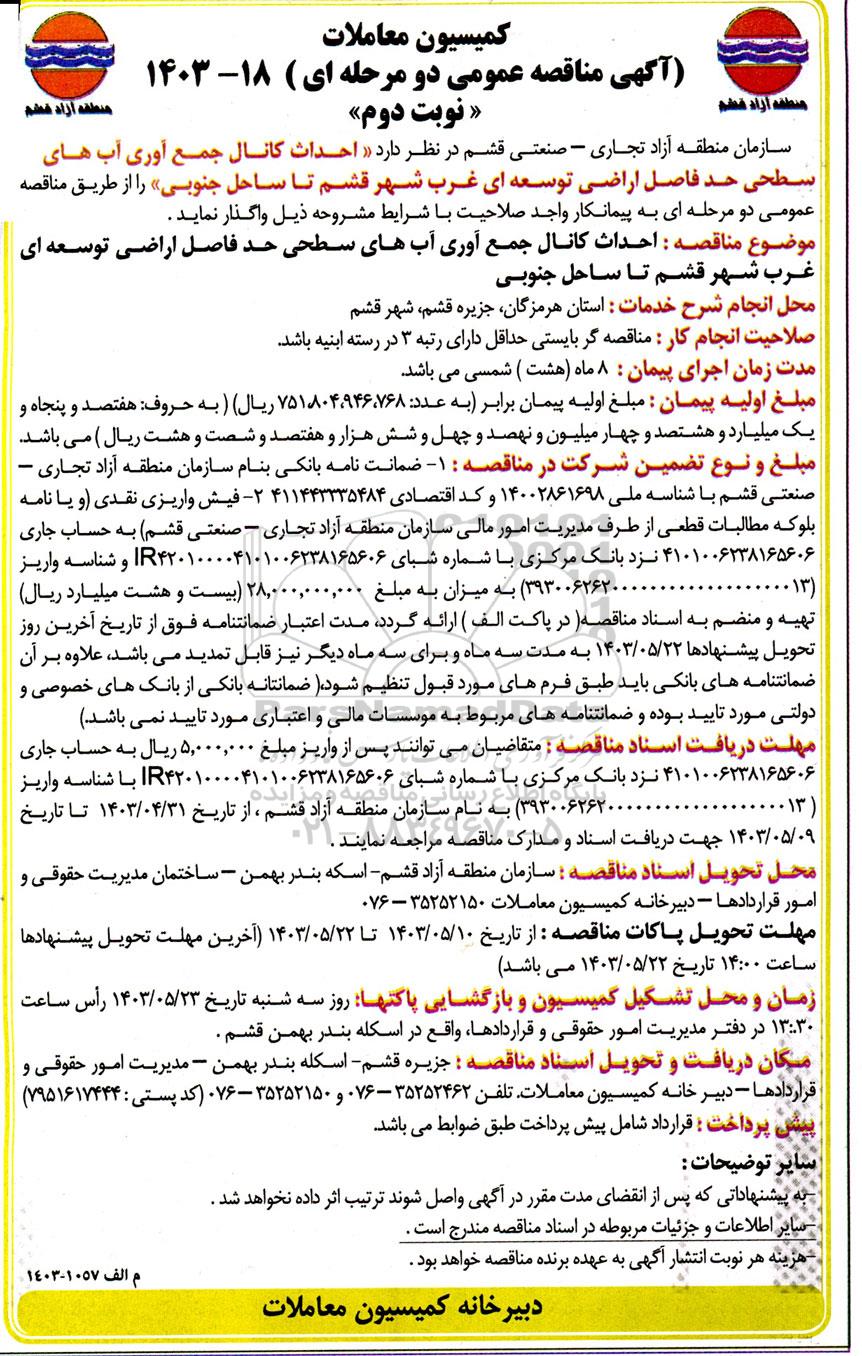 کمیسیون معاملات
(آگهی مناقصه عمومی دو مرحله ای ) ۱۸- ۱۴۰۳
« نوبت دوم»
منطقه آزاد قشم
منطقه آزاد قشم
سازمان منطقه آزاد تجاری – صنعتی قشم در نظر دارد « احداث کانال جمع آوری آب های
سطحی حد فاصل اراضی توسعه ای غرب شهر قشم تا ساحل جنوبی» را از طریق مناقصه
عمومی دو مرحله ای به پیمانکار واجد صلاحیت با شرایط مشروحه ذیل واگذار نماید .
موضوع مناقصه : احداث کانال جمع آوری آب های سطحی حد فاصل اراضی توسعه ای
غرب شهر قشم تا ساحل جنوبی
محل انجام شرح خدمات : استان هرمزگان، جزیره قشم، شهر قشم
صلاحیت انجام کار : مناقصه گر بایستی حداقل دارای رتبه ۳ در رسته ابنیه باشد.
مدت زمان اجرای پیمان : ۸ ماه (هشت ) شمسی می باشد.
مبلغ اولیه پیمان : مبلغ اولیه پیمان برابر (به عدد: ۷۵۱،۸۰۴،۹۴۶،۷۶۸ ریال) ( به حروف: هفتصد و پنجاه و
یک میلیارد و هشتصد و چهار میلیون و نهصد و چهل و شش هزار و هفتصد و شصت و هشت ریال ) می باشد.
مبلغ و نوع تضمین شرکت در مناقصه : ۱- ضمانت نامه بانکی بنام سازمان منطقه آزاد تجاری –
صنعتی قشم با شناسه ملی ۱۴۰۰۲۸۶۱۶۹۸ و کد اقتصادی ۴۱۱۴۴۳۳۳۵۴۸۴ ۲- فیش واریزی نقدی (و یا نامه
بلوکه مطالبات قطعی از طرف مدیریت امور مالی سازمان منطقه آزاد تجاری – صنعتی قشم) به حساب جاری
۴۱۰۱۰۰۶۲۳۸۱۶۵۶۰۶ نزد بانک مرکزی با شماره شبای IR۴۲۰۱۰۰۰۰۴۱۰۱۰۰۶۲۳۸۱۶۵۶۰۶ و شناسه واریز
(۳۹۳۰۰۶۲۶۲۰۰۰۰۰۰۰۰۰۰۰۰۰۰۰۰۰۰۰۰۱۳) به میزان به مبلغ ۲۸,۰۰۰,۰۰۰,۰۰۰ (بیست و هشت میلیارد ریال)
تهیه و منضم به اسناد مناقصه( در پاکت الف ) ارائه گردد، مدت اعتبار ضمانتنامه فوق از تاریخ آخرین روز
تحویل پیشنهادها ۱۴۰۳/۰۵/۲۲ به مدت سه ماه و برای سه ماه دیگر نیز قابل تمدید می باشد، علاوه بر آن
ضمانتنامه های بانکی باید طبق فرم های مورد قبول تنظیم شود،( ضمانتانه بانکی از بانک های خصوصی و
دولتی مورد تایید بوده و ضمانتنامه های مربوط به موسسات مالی و اعتباری مورد تایید نمی باشد.)
ParsNamadData
مهلت دریافت اسناد مناقصه : متقاضیان می توانند پس از واریز مبلغ ۵,۰۰۰,۰۰۰ ریال به حساب جاری
۴۱۰۱۰۰۶۲۳۸۱۶۵۶۰۶ نزد بانک مرکزی با شماره شبای IR۴۲۰۱۰۰۰۰۴۱۰۱۰۰۶۲۳۸۱۶۵۶۰۶ با شناسه واریز
پایگاه اطلاع رسانی مناقصه و مزایده
( ۳۹۳۰۰۶۲۶۲۰۰۰۰۰۰۰۰۰۰۰۰۰۰۰۰۰۰۰۰۱۳) به نام سازمان منطقه آزاد قشم ، از تاریخ ۱۴۰۳/۰۴/۳۱ تا تاریخ
۱۴۰۳/۰۵/۰۹ جهت دریافت اسناد و مدارک مناقصه مراجعه نمایند .
۰۲۱-۸۸۳۴۹۶۷۰-۵
محل تحویل اسناد مناقصه : سازمان منطقه آزاد قشم- اسکه بندر بهمن – ساختمان مدیریت حقوقی و
امور قراردادها – دبیرخانه کمیسیون معاملات ۳۵۲۵۲۱۵۰ – ۰۷۶
مهلت تحویل پاکات مناقصه : از تاریخ ۱۴۰۳/۰۵/۱۰ تا ۱۴۰۳/۰۵/۲۲ (آخرین مهلت تحویل پیشنهادها
ساعت ۱۴:۰۰ تاریخ ۱۴۰۳/۰۵/۲۲ می باشد)
زمان و محل تشکیل کمیسیون و بازگشایی پاکتها: روز سه شنبه تاریخ ۱۴۰۳/۰۵/۲۳ رأس ساعت
۱۳:۳۰ در دفتر مدیریت امور حقوقی و قراردادها، واقع در اسکله بندر بهمن قشم .
مکان دریافت و تحویل اسناد مناقصه : جزیره قشم- اسکله بندر بهمن – مدیریت امور حقوقی و
قراردادها – دبیر خانه کمیسیون معاملات. تلفن ۳۵۲۵۲۴۶۲ – ۰۷۶ و ۳۵۲۵۲۱۵۰ – ۰۷۶ (کد پستی : ۷۹۵۱۶۱۷۴۴۴)
پیش پرداخت : قرارداد شامل پیش پرداخت طبق ضوابط می باشد.
سایر توضیحات :
-به پیشنهاداتی که پس از انقضای مدت مقرر در آگهی واصل شوند ترتیب اثر داده نخواهد شد .
-سایر اطلاعات و جزئیات مربوطه در اسناد مناقصه مندرج است .
-هزینه هر نوبت انتشار آگهی به عهده برنده مناقصه خواهد بود .
م الف ۱۰۵۷-۱۴۰۳
دبیرخانه کمیسیون معاملات